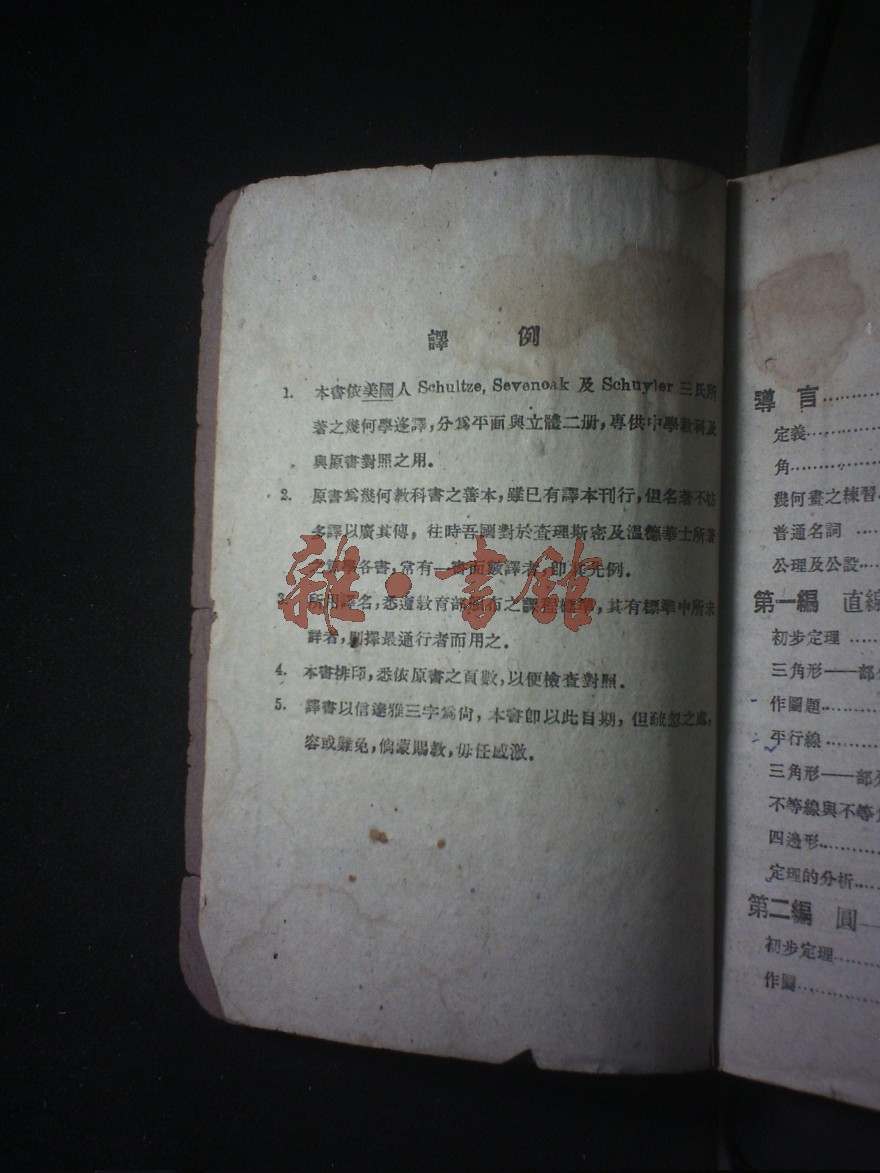 譯 例
1. 本書依美國人 Schultze, Sevenoak 及 Schuyler 三氏所
著之幾何學迻譯,分爲平面與立體二册,專供中學教科及
與原書對照之用。
2. 原書爲幾何教科書之善本,雖已有譯本刊行,但名著不妨
多譯以廣其傳,往時吾國對於查理斯密及溫德華士所著
之 各書,常有一書而數譯者,卽其先例。
3. 所用譯名,悉遵教育部頒布之課程標準,其有標準中所未
詳者,則擇最通行者而用之。
4. 本書排印,悉依原書之頁數,以便檢查對照。
5. 譯書以信達雅三字爲尙,本書卽以此自期,但疏忽之處,
容或難免,倘蒙賜教,毋任感激。
雜·書館
導 言
定義
角
幾何畫之練習
普通名詞
公理及公設
第一編 直線
初步定理
三角形——部
作圖題
平行線
三角形——部
不等線與不等
四邊形
定理的分析
第二編 圓
初步定理
作圖